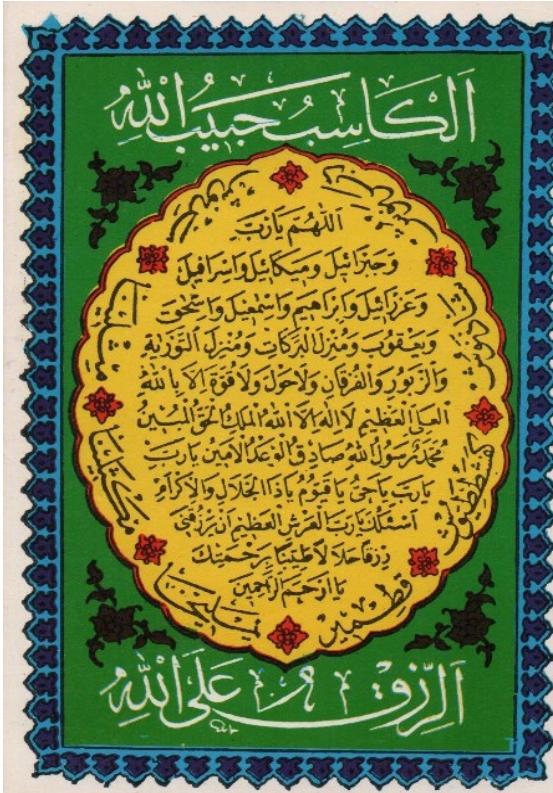 اَلْكَاسِبُ حَبِيبُ اللهِ
اَللّٰهُمَّ يَارَبَّ
وَجَبْرَائِيلَ وَمِيكَائِيلَ وَاِسْرَافِيلَ
وَعَزْرَائِيلَ وَاِبْرَاهِيمَ وَاِسْمٰعِيلَ وَاِسْحٰقَ
وَيَعْقُوبَ وَمُنْزِلَ الْبَرَكَاتِ وَمُنْزِلَ التَّوْرٰيةِ
وَالزَّبُورِ وَالْفُرْقَانِ وَلَاحَوْلَ وَلَاقُوَّةَ اِلَّا بِاللهِ
الْعَلِيِّ الْعَظِيمِ لَا اِلٰهَ اِلَّا اللهُ الْمَلِكُ الْحَقُّ الْمُبِينُ
مُحَمَّدٌ رَسُولُ اللهِ صَادِقُ الْوَعْدُ الْاَمِينُ يَارَبِّ
يَارَبِّ يَاحَيُّ يَاقَيُّومُ يَاذَا الْجَلَالِ وَالْاِكْرَامِ
اَسْئَلُكَ يَارَبَّ الْعَرْشِ الْعَظِيمِ اَنْ يَرْزُقَنِي
رِزْقًا حَلَالًا طَيِّبًا بِرَحْمَتِكَ
يَا اَرْحَمَ الرَّاحِمِينَ
شاذنوش
كفشططيوش
قطمير
يمليخا
مكثلينا
اَلرِّزْقُ عَلَى اللهِ